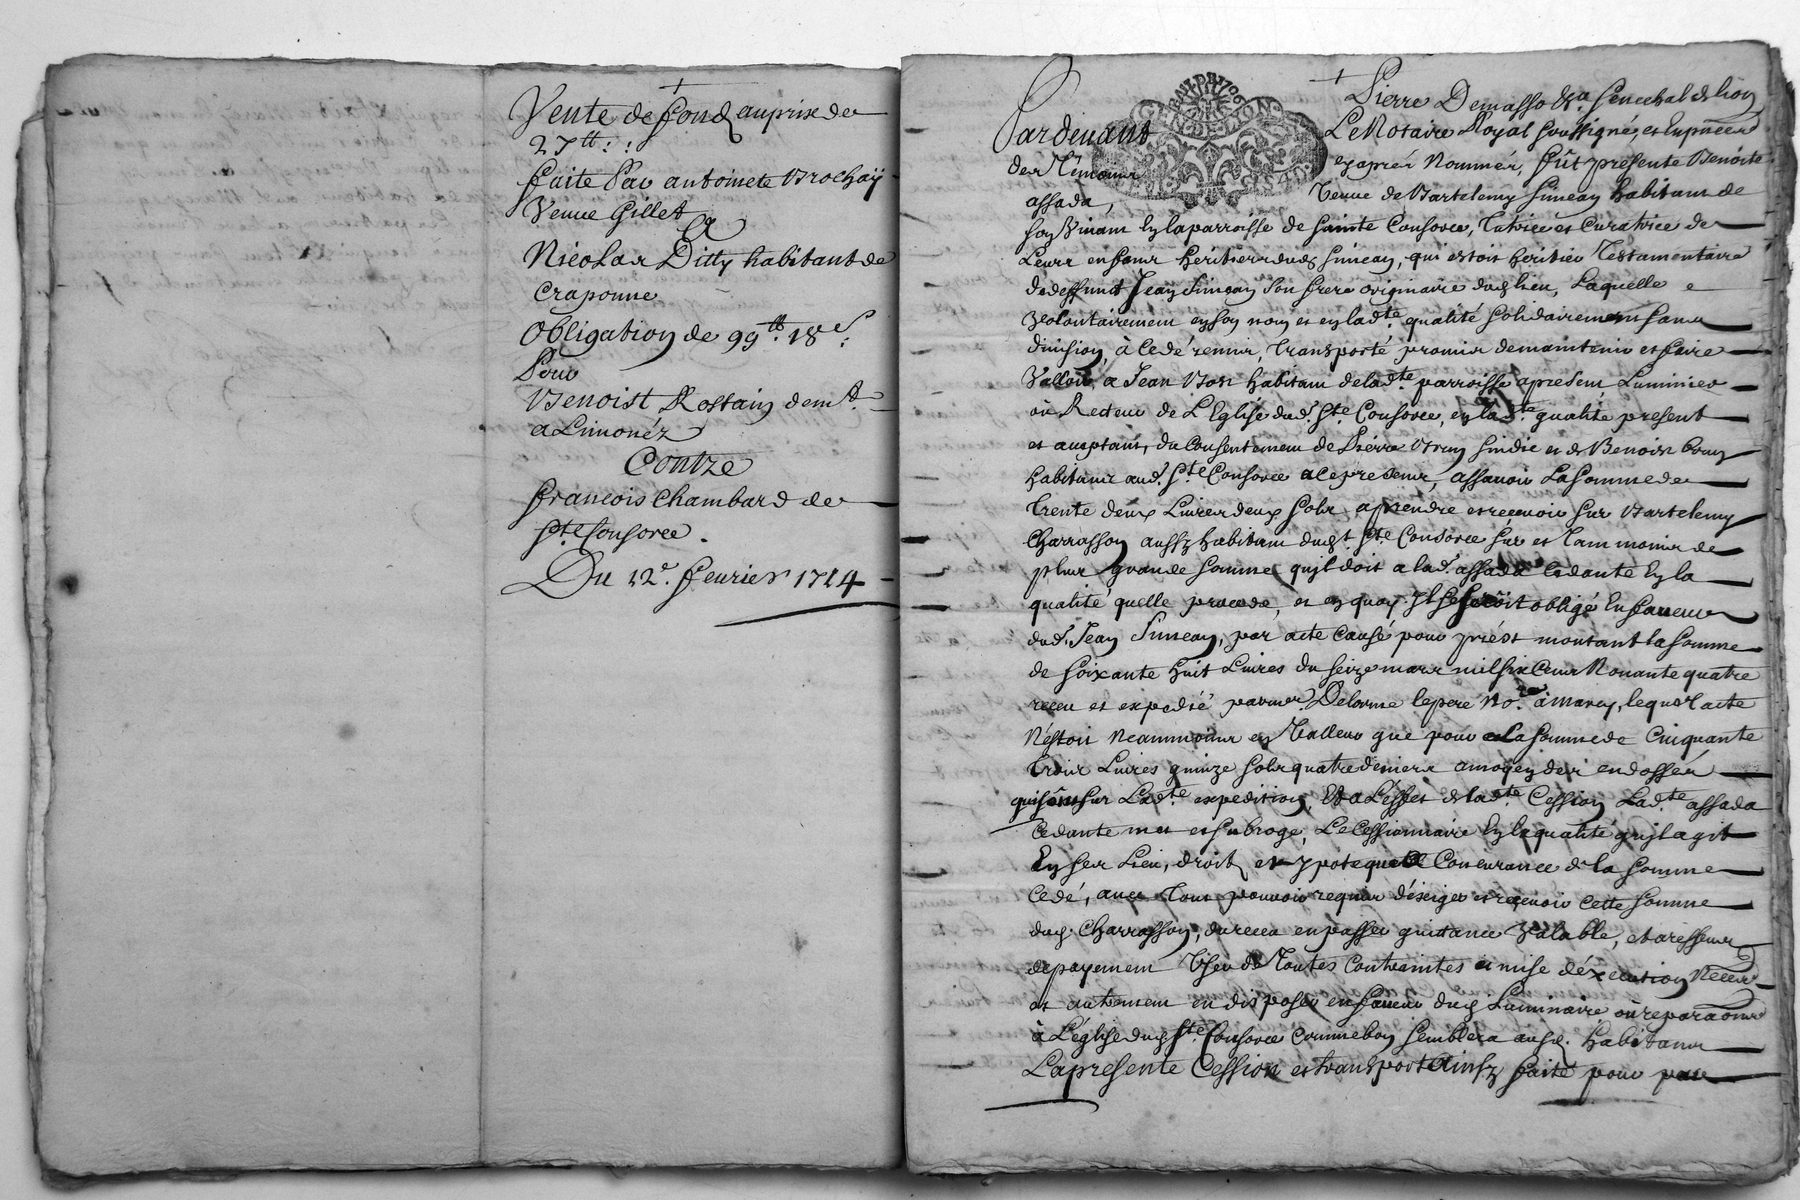 Vente de fond au prix de
27tt : :
faite Par antoinete Brochaÿ
Veuve Gillet
&
Nicolas Ditty habitant de
Craponne
Obligation de 99tt. 18s :
Pour
Benoist Rostain demt.
a Limonéz
Contre
françois Chambard de
Ste Consorce .
Du 12e. feurier 1714
+ Pierre Demasso Senechal de lion
Pardeuant Le Notaire Royal soussigné, et En presence
des Témoins cy aprés Nommés, fût presente Benoite
assada, Veuue de Bartelemy Simean habitant de
son Viuant En la parroisse de sainte Consorce, Tutrice et Curatrice de
Leurs enfans héritiers dud Simean, qui estoit héritier Testamentaire
de deffunct Jean Simean son frere originaire dud lieu, Laquelle
Volontairement en son nom et en ladte. qualité solidairement sans
diuision, à Cedé remis, Transporté promis de maintenir et faire
Valloir, a Jean Bon habitant de ladte parroisse apresent Luminier
où Recteur de L'Eglise dud. Ste. Consorce, en ladte qualité present
et acceptant, du Consentement de Pierre Brun sindic et de Benoist brun
habitans aud. Ste Consorce a Ce presens, assauoir La somme de
Trente deux Liures deux sols a prendre et receuoir sur Bartelemy
Charrasson aussy habitant dud. Ste. Consorce sur et Tant moins de
plus grande somme qu'jl doit a lad. assada Cedante En la
qualité quelle procede, et en quoy jl se seroit obligé En faueur
dud. Jean Simean, par acte Causé pour prést montant la somme
de soixante huit Liures du seize mars mil six Cens Nonante quatre
receu et expedié par me. Delorme le pere No.re à marcy, lequel acte
N'éstoit Neammoins en Valleur que pour La somme de Cinquante
Trois Liures quinze sols quatre deniers amoyen des endossés
qui sont sur Ladte. expedition, Et a L'effet de ladte. Cession Ladte assada
Cedante met et subroge, Le Cessionnaire En la qualité qu'jl agit
En ses Lieu, droit, et ypoteque Concurance de la somme
Cedé, auec Tous pouuoirs requis d'éxiger et reçeuoir Cette somme
dud. Charrasson, du receu en passer quittance Valable, et a reffus
de payement Vser de Toutes Contraintes et mise d'éxecution Necess.
et autrement en disposer en faueur dud Luminaire où reparaons
à L'église dud Ste. Consorce Comme bon semblera ausd. habitans
La presente Cession et transport Ainsy faite pour par